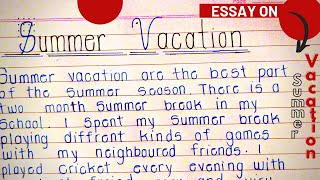 ESSAY ON
Summer Vacation
Summer Vacation
Summer vacation are the best part
of the summer season. There is a
two month summer break in my
School. I spent my summer break
playing diffrent kinds of games
with my neighboured friends. I
played cricket every evening with